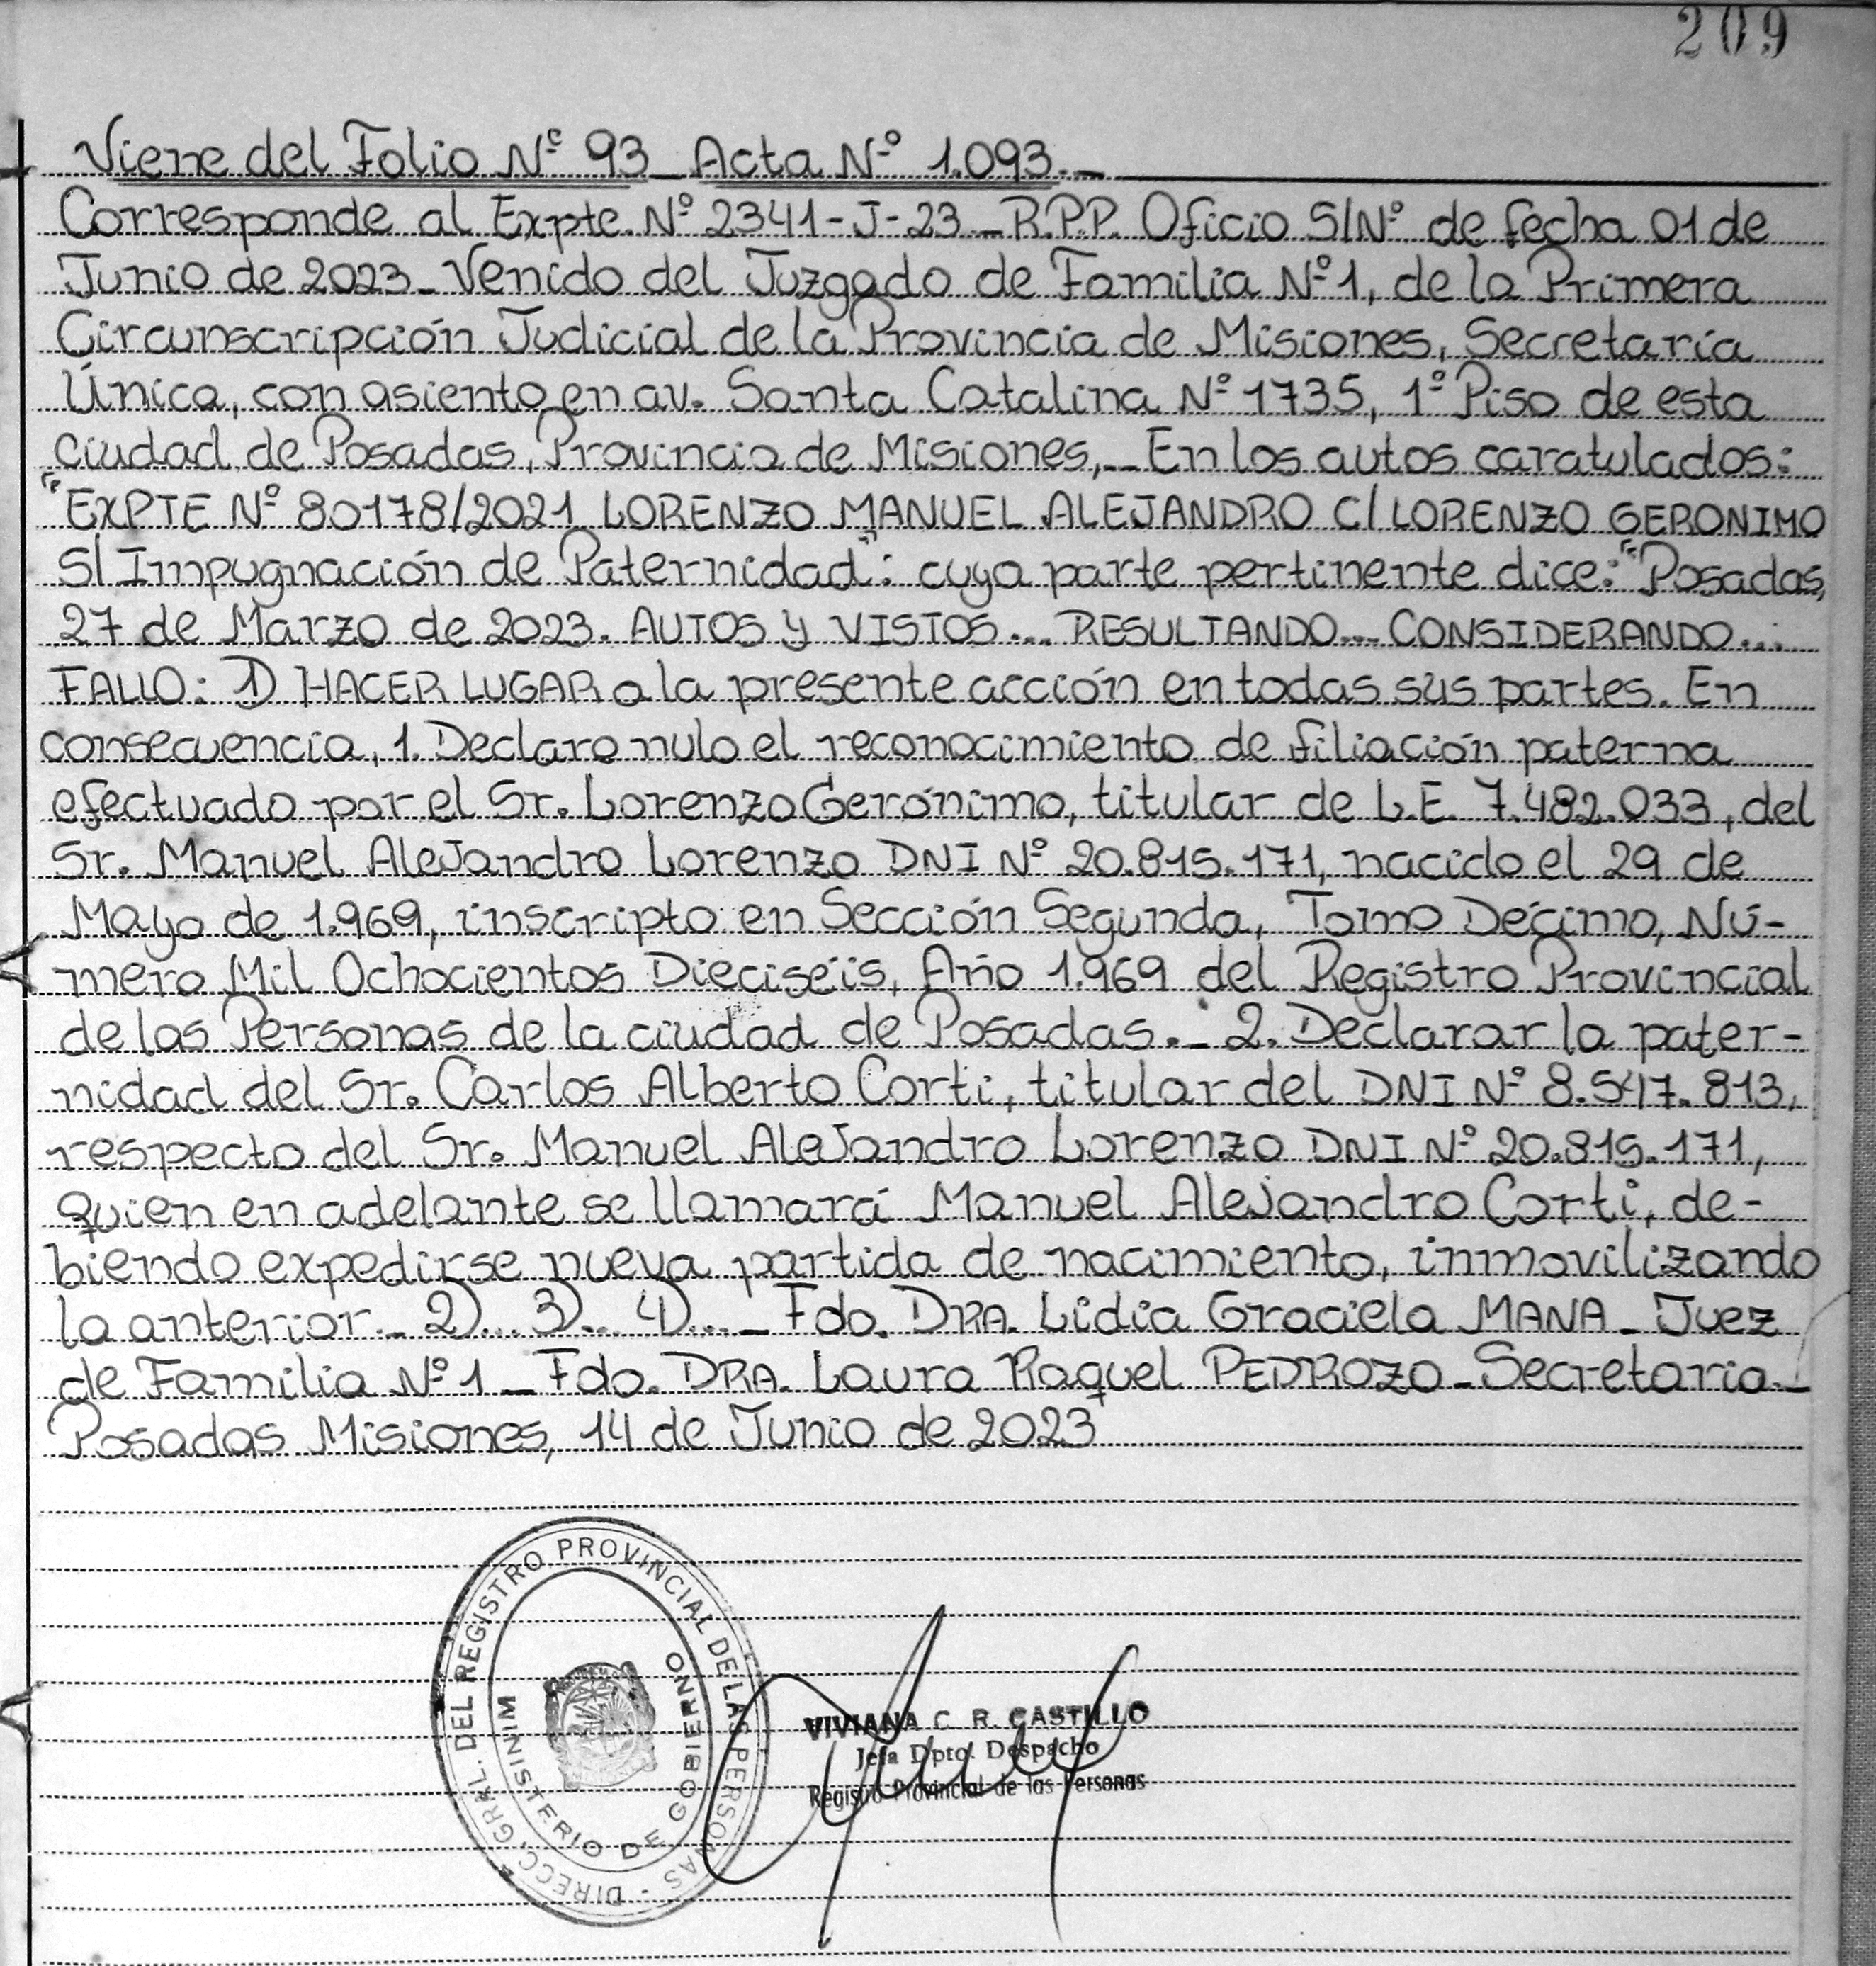 209
Viene del Folio Nº 93_Acta Nº 1.093._
Corresponde al Expte. Nº 2341-J-23_R.P.P. Oficio S/Nº de fecha 01 de
Junio de 2023_Venido del Juzgado de Familia Nº1, de la Primera
Circunscripción Judicial de la Provincia de Misiones, Secretaría
Única, con asiento en av. Santa Catalina Nº 1735, 1º Piso de esta
ciudad de Posadas, Provincia de Misiones,_ En los autos caratulados:
"EXPTE Nº 80178/2021 LORENZO MANUEL ALEJANDRO C/ LORENZO GERONIMO
S/ Impugnación de Paternidad": cuya parte pertinente dice: "Posadas,
27 de Marzo de 2023. AUTOS Y VISTOS... RESULTANDO... CONSIDERANDO...
FALLO: 1) HACER LUGAR a la presente acción en todas sus partes. En
consecuencia, 1. Declaro nulo el reconocimiento de filiación paterna
efectuado por el Sr. Lorenzo Gerónimo, titular de L.E. 7.482.033, del
Sr. Manuel Alejandro Lorenzo DNI Nº 20.815.171, nacido el 29 de
Mayo de 1.969, inscripto en Sección Segunda, Tomo Décimo, Nú-
mero Mil Ochocientos Dieciséis, Año 1.969 del Registro Provincial
de las Personas de la ciudad de Posadas._ 2. Declarar la pater-
nidad del Sr. Carlos Alberto Corti, titular del DNI Nº 8.547.813,
respecto del Sr. Manuel Alejandro Lorenzo DNI Nº 20.815.171,
quien en adelante se llamará Manuel Alejandro Corti, de-
biendo expedirse nueva partida de nacimiento, inmovilizando
la anterior._ 2)... 3)... 4)..._ Fdo. DRA. Lidia Graciela MANA_Juez
de Familia Nº 1_Fdo. DRA. Laura Raquel PEDROZO_Secretaria._
Posadas Misiones, 14 de Junio de 2023
DIRECC. GRAL. DEL REGISTRO PROVINCIAL DE LAS PERSONAS -
MINISTERIO DE GOBIERNO
VIVIANA C. R. CASTILLO
Jefa Dpto. Despacho
Registro Provincial de las Personas